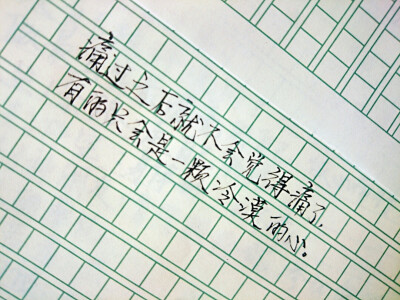 痛过之后就不会觉得痛了,
有的只会是一颗冷漠的心.